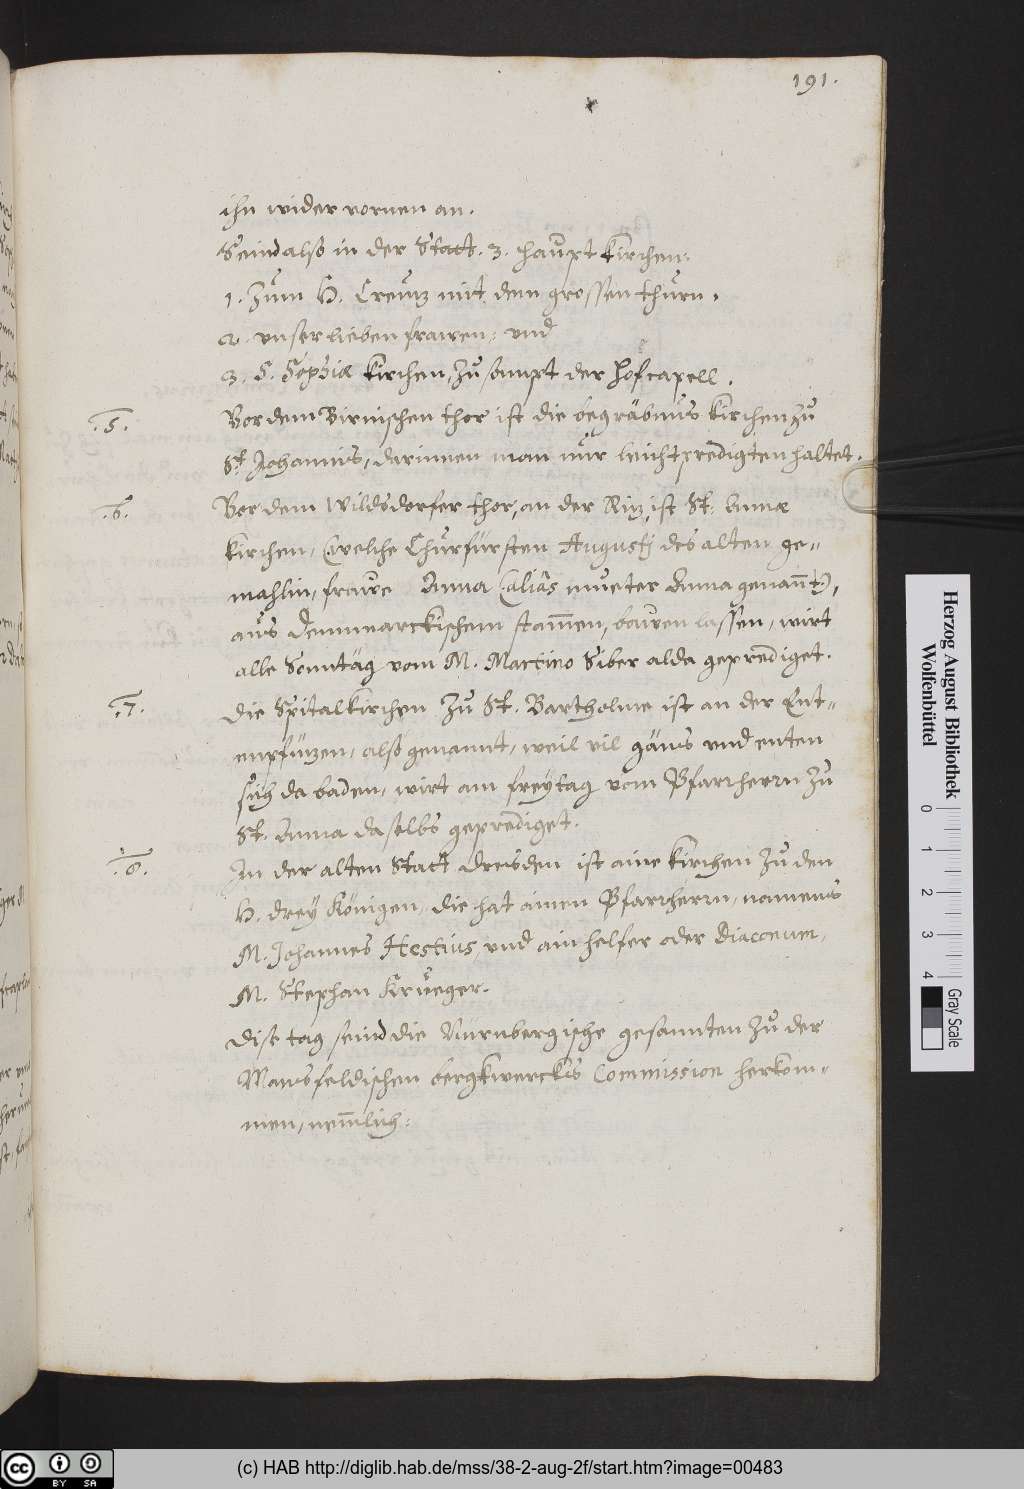 191.
ihn wider vornen an.
Seind also in der Statt. 3. haupt kirchen.
1. Zum H. Creutz mit dem grossen thurn.
2. unser lieben frawen: und
3. S. Sophiæ kirchen, zu sampt der Hofcapell.
.5. Vor dem Birnischen thor ist die begräbnus kirchen zu
St. Johannis, darinnen man nur leichtpredigten haltet.
.6. Vor dem Wildsdorfer thor, an der ist St. Annæ
kirchen, (welche Churfürsten Augusti des alten ge-
mahlin, frawe Anna (aliàs mueter Anna genant),
aus Dennmarckischem stammen, bawen lassen, wirt
alle Sonntag vom M. Martino Siber alda geprediget.
.7. Die Spitalkirchen zu St. Bartholme ist an der Ent-
enpfützen, also genannt, weil vil gäns und enten
sich da baden, wirt am freytag vom Pfarrherrn zu
St. Anna daselbs geprediget.
.8. In der alten Statt Dresden ist aine kirchen zu den
H. drey Königen, die hat ainen Pfarrherrn, namens
M. Johannes Hestius, und ain helfer oder Diaconum,
M. Stephan Krüeger.
Dise tag seind die Nürnbergische gesannten zu der
Mansfeldischen bergkwercks Commission herkom-
men, nemlich:
Herzog August Bibliothek
Wolfenbüttel
0 1 2 3 4
Gray Scale
cc BY SA
(c) HAB http://diglib.hab.de/mss/38-2-aug-2f/start.htm?image=00483